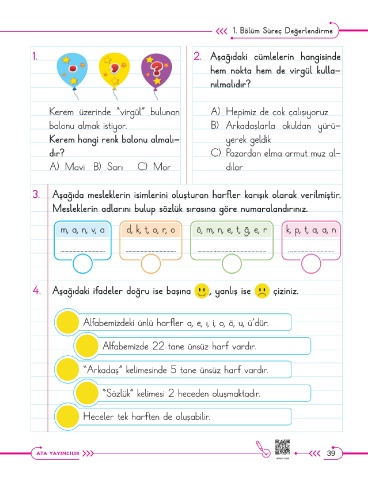 1. Bölüm Süreç Değerlendirme
1.
. , ?
Kerem üzerinde "virgül" bulunan
balonu almak istiyor.
Kerem hangi renk balonu almalı-
dır?
A) Mavi B) Sarı C) Mor
2. Aşağıdaki cümlelerin hangisinde
hem nokta hem de virgül kulla-
nılmalıdır?
A) Hepimiz de çok çalışıyoruz
B) Arkadaşlarla okuldan yürü-
yerek geldik
C) Pazardan elma armut muz al-
dılar
3. Aşağıda mesleklerin isimlerini oluşturan harfler karışık olarak verilmiştir.
Mesleklerin adlarını bulup sözlük sırasına göre numaralandırınız.
m, a, n, v, a
d, k, t, o, r, o
ö, m, n, e, t, ğ, e, r
k, p, t, a, a, n
4. Aşağıdaki ifadeler doğru ise başına , yanlış ise çiziniz.
Alfabemizdeki ünlü harfler a, e, ı, i, o, ö, u, ü'dür.
Alfabemizde 22 tane ünsüz harf vardır.
"Arkadaş" kelimesinde 5 tane ünsüz harf vardır.
"Sözlük" kelimesi 2 heceden oluşmaktadır.
Heceler tek harften de oluşabilir.
ATA YAYINCILIK
39